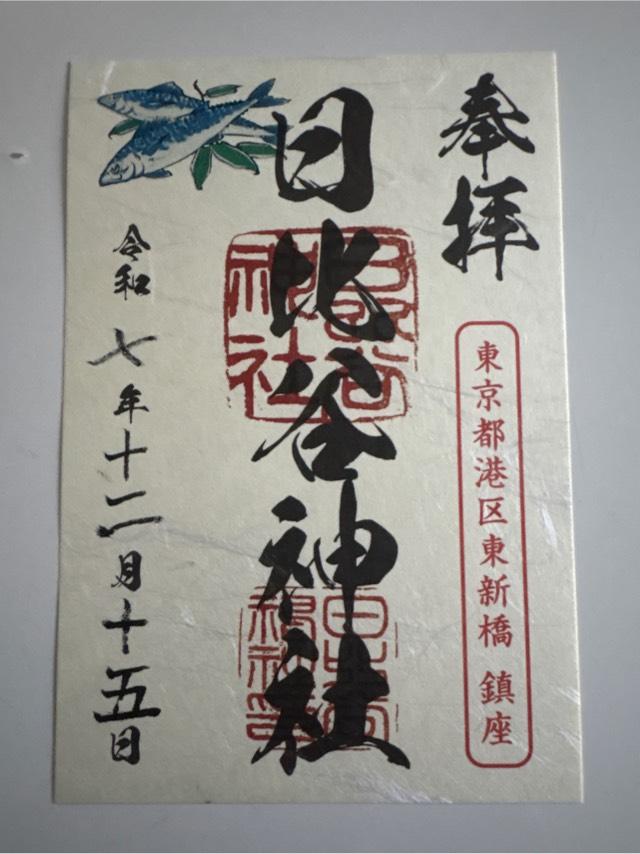 奉拝
東京都港区東新橋 鎮座
日比谷神社
令和七年十二月十五日